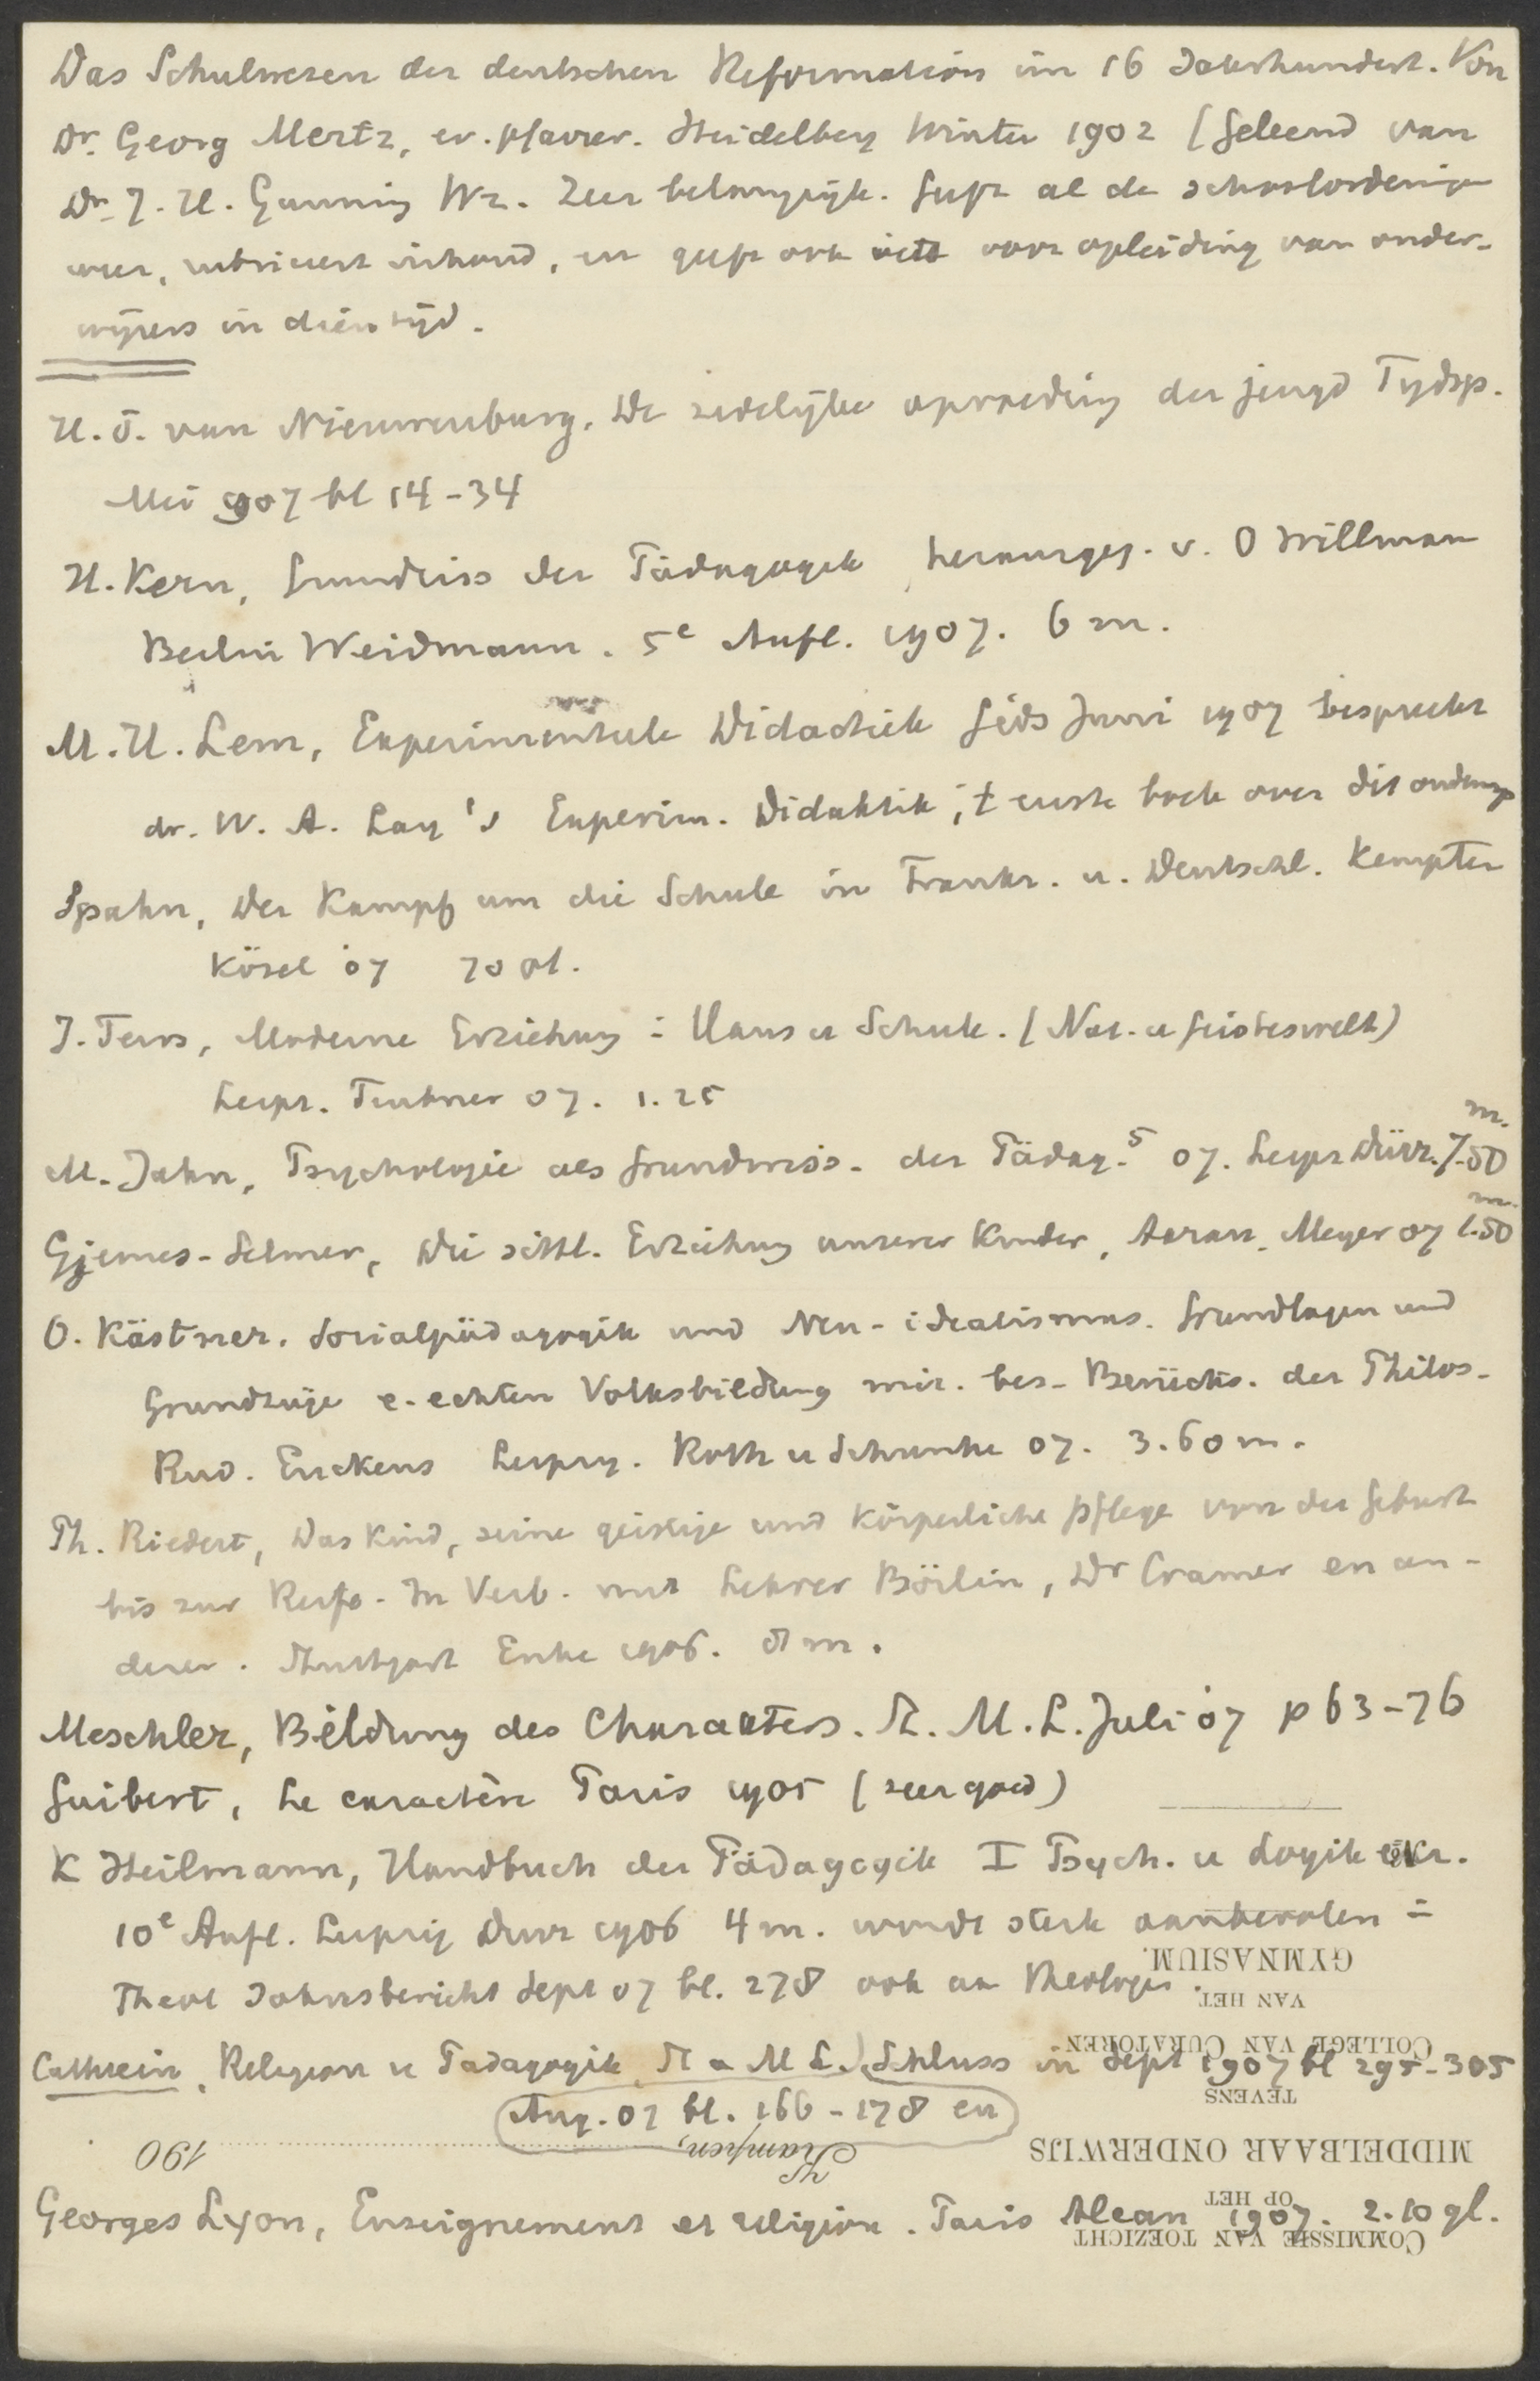 Das Schulwesen der deutschen Reformation im 16 Jahrhundert. Von
Dr. Georg Mertz, ev. pfarrer. Heidelberg Winter 1902 (Geleend van
Dr. J. H. Gunning Wz. Zeer belangrijk. Geeft al de schoolordeningen
weer, rubriceert inhoud, en geeft ook iets voor opleiding van onder-
wijzers in dien tijd.
H. J. van Nieuwenburg, De zedelijke opvoeding der jeugd Tijdsp.
Mei 907 bl 14-34
H. Kern, Grundriss der Pädagogik, herausgeg. v. O Willman
Berlin Weidmann. 5e Aufl. 1907. 6 m.
M. H. Lem, Experimenteele Didactiek Gids Juni 1907 bespreekt
dr. W. A. Lay's Experim. Didaktik, 't eerste boek over dit onderwerp
Spahn, Der Kampf um die Schule in Frankr. u. Deutschl. Kempten
Kösel 07 70 pf.
J. Tews, Moderne Erziehung i. Haus u Schule. (Nat. u Geisteswelt)
Leipz. Teubner 07. 1.25
M. Jahn, Psychologie als Grundwiss. der Pädag. 5 07. Leipz Dürr. 7.50 m.
Gjems-Selmer, Die sittl. Erziehung unserer Kinder, Aarau, Meyer 07 1.50 m.
O. Kästner. Socialpädagogik und Neu-idealismus. Grundlagen und
Grundzüge e. echten Volksbildung mit. bes. Berücks. der Philos.
Rud. Euckens Leipzig. Roth u Schunke 07. 3.60 m.
Th. Riedert, Das Kind, seine geistige und körperliche pflege von der Geburt
bis zur Reife. In Verb. mit Lehrer Börlin, Dr Cramer en an-
derer. Stuttgart Enke 1906. 8 m.
Meschler, Bildung des Charakters. St. M. L. Juli 07 p 63-76
Guibert, Le caractère Paris 1905 (zeer goed)
K Heilmann, Handbuch der Pädagogik I Psych. u Logik
10e Aufl. Leipzig Dürr 1906 4 m. wordt sterk aanbevolen i
Theol Jahresbericht Sept 07 bl. 278 ook aan theologen.
GYMNASIUM.
VAN HET
COLLEGE VAN CURATOREN
Cathrein, Religion u Padagogik St a M L. Schluss in Sept 1907 bl 295-305
TEVENS
Aug. 07 bl. 166-178 en
MIDDELBAAR ONDERWIJS
Kampen, 190
OP HET
Georges Lyon, Enseignement et religion. Paris Alcan 1907. 2.10 gl.
COMMISSIE VAN TOEZICHT